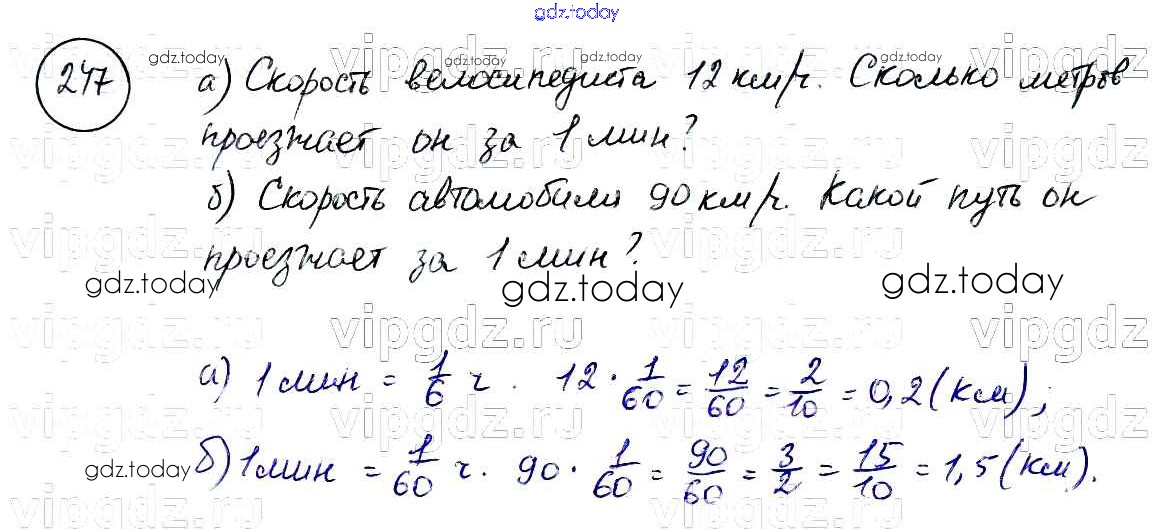 gdz.today
247 а) Скорость велосипедиста 12 км/ч. Сколько метров
проезжает он за 1 мин?
б) Скорость автомобиля 90 км/ч. Какой путь он
проезжает за 1 мин?
а) 1 мин = 1/6 ч. 12 · 1/60 = 12/60 = 2/10 = 0,2 (км);
б) 1 мин = 1/60 ч. 90 · 1/60 = 90/60 = 3/2 = 15/10 = 1,5 (км).